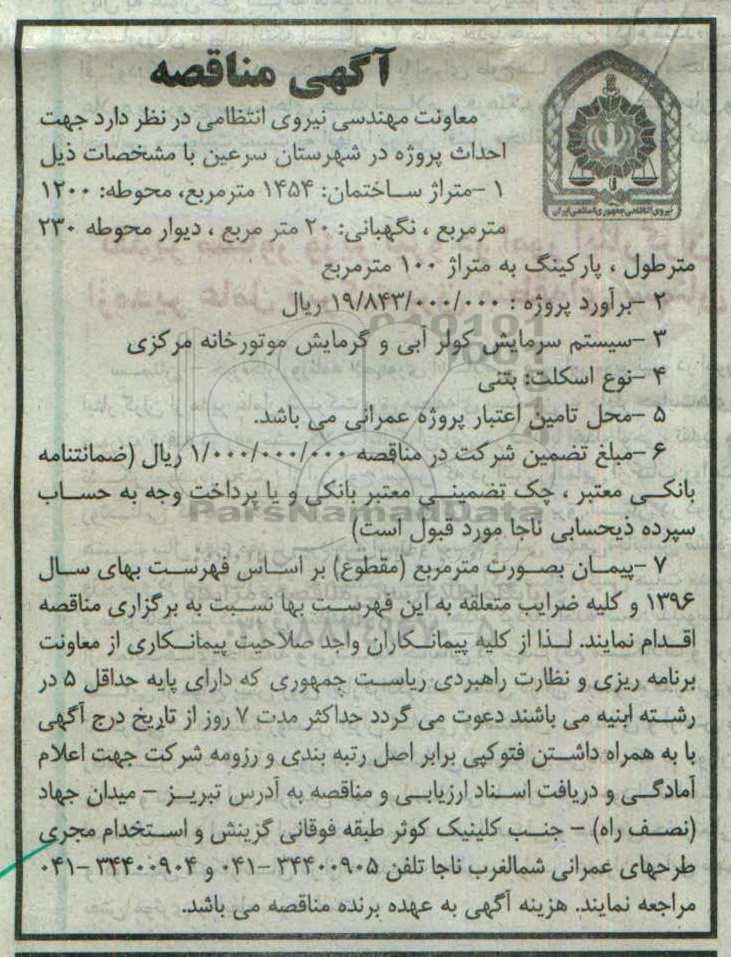 آگهی مناقصه
نیروی انتظامی جمهوری اسلامی ایران
معاونت مهندسی نیروی انتظامی در نظر دارد جهت
احداث پروژه در شهرستان سرعین با مشخصات ذیل
۱ -متراژ ساختمان: ۱۴۵۴ مترمربع، محوطه: ۱۲۰۰
مترمربع ، نگهبانی: ۲۰ متر مربع ، دیوار محوطه ۲۳۰
مترطول ، پارکینگ به متراژ ۱۰۰ مترمربع
۲ -برآورد پروژه : ۱۹/۸۴۳/۰۰۰/۰۰۰ ریال
۳ -سیستم سرمایش کولر آبی و گرمایش موتورخانه مرکزی
۴ -نوع اسکلت: بتنی
۵ -محل تامین اعتبار پروژه عمرانی می باشد.
۶ -مبلغ تضمین شرکت در مناقصه ۱/۰۰۰/۰۰۰/۰۰۰ ریال (ضمانتنامه
بانکی معتبر ، چک تضمینی معتبر بانکی و یا پرداخت وجه به حساب
سپرده ذیحسابی ناجا مورد قبول است)
ParsNamadData
۷ -پیمان بصورت مترمربع (مقطوع) بر اساس فهرست بهای سال
۱۳۹۶ و کلیه ضرایب متعلقه به این فهرست بها نسبت به برگزاری مناقصه
اقدام نمایند. لذا از کلیه پیمانکاران واجد صلاحیت پیمانکاری از معاونت
برنامه ریزی و نظارت راهبردی ریاست جمهوری که دارای پایه حداقل ۵ در
رشته ابنیه می باشند دعوت می گردد حداکثر مدت ۷ روز از تاریخ درج آگهی
با به همراه داشتن فتوکپی برابر اصل رتبه بندی و رزومه شرکت جهت اعلام
آمادگی و دریافت اسناد ارزیابی و مناقصه به آدرس تبریز - میدان جهاد
(نصف راه) - جنب کلینیک کوثر طبقه فوقانی گزینش و استخدام مجری
طرحهای عمرانی شمالغرب ناجا تلفن ۳۴۴۰۰۹۰۵-۰۴۱ و ۳۴۴۰۰۹۰۴-۰۴۱
مراجعه نمایند. هزینه آگهی به عهده برنده مناقصه می باشد.